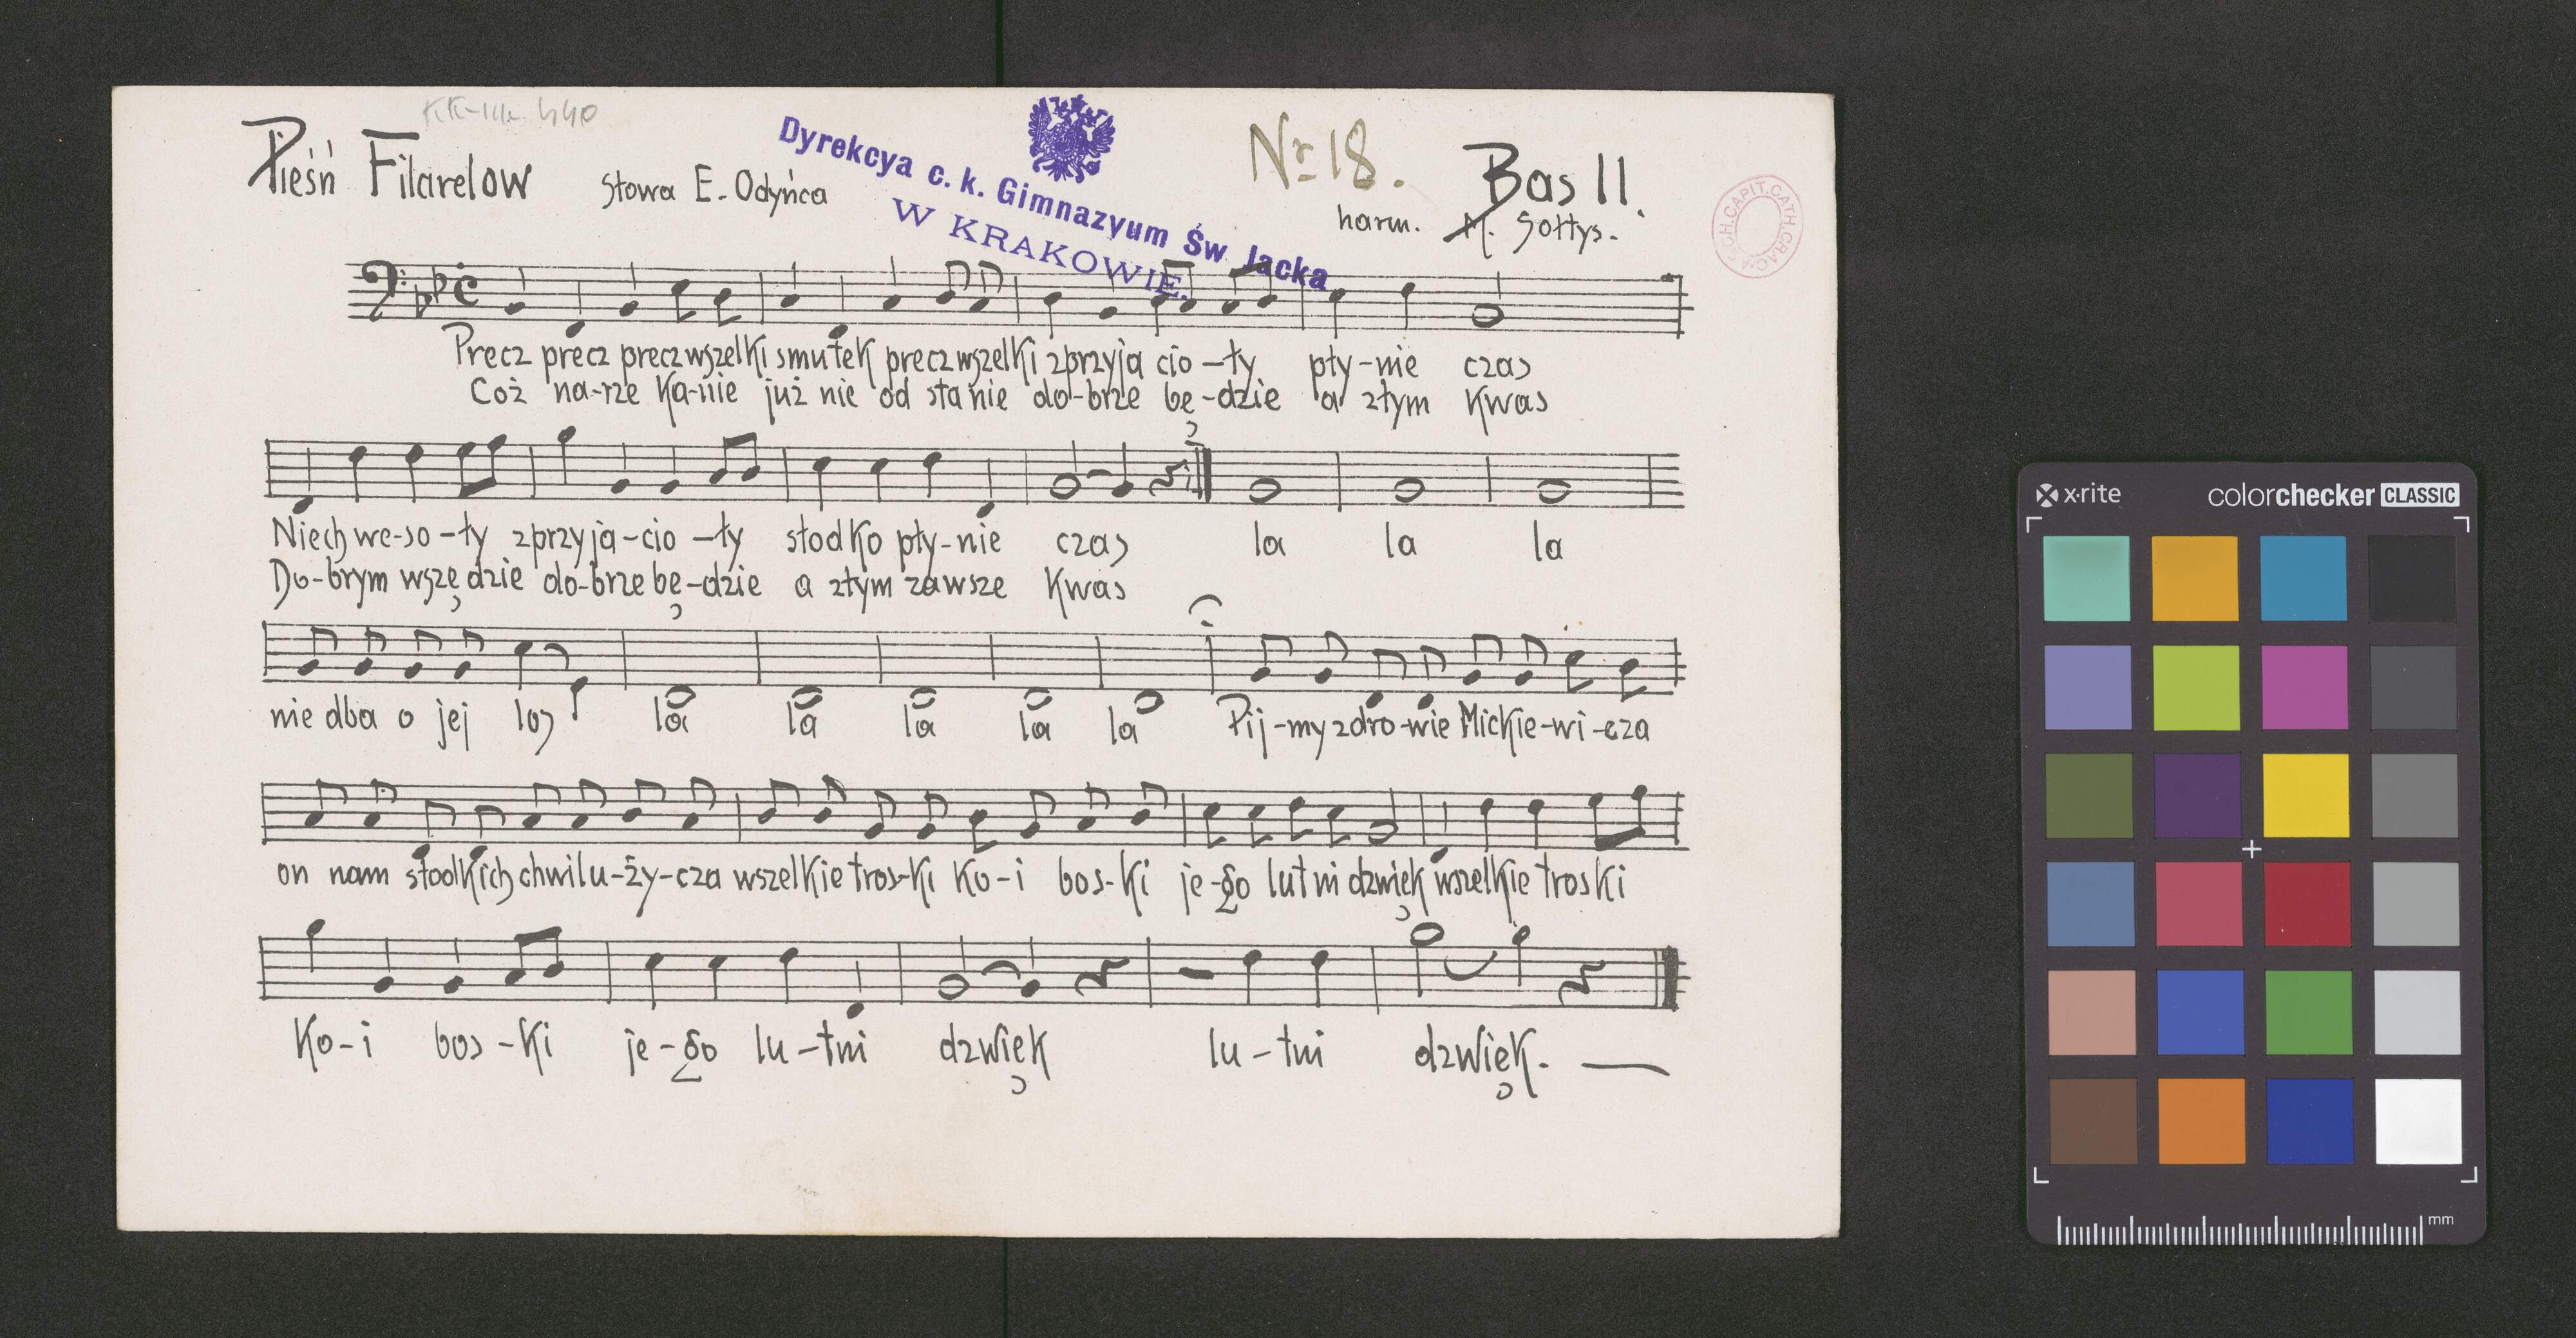 KK-III. 440
Pieśń Filarelow słowa E. Odyńca
Dyrekcya c. k. Gimnazyum Św Jacka
W KRAKOWIE.
Nr 18.
Bas II.
harm. M. Sołtys.
ARCH.CAPIT.CATH.CRAC.
Precz precz precz wszelki smutek precz wszelki z przyja cio-ły pły-nie czas
Coż na-rze ka-nie już nie od sta nie do-brze bę-dzie a złym kwas
Niech we-so-ły z przy ja-cio-ły słodko pły-nie czas la la la
Do-brym wszę dzie do-brze bę-dzie a złym zawsze kwas
nie dba o jej los la la la la la Pij-my zdro-wie Mickie-wi-cza
on nam słodkich chwil u-ży-cza wszelkie tros-ki ko-i bos-ki je-go lutni dzwięk wszelkie troski
ko-i bos-ki je-go lu-tni dzwięk lu-tni dzwięk.
x·rite colorchecker CLASSIC
mm